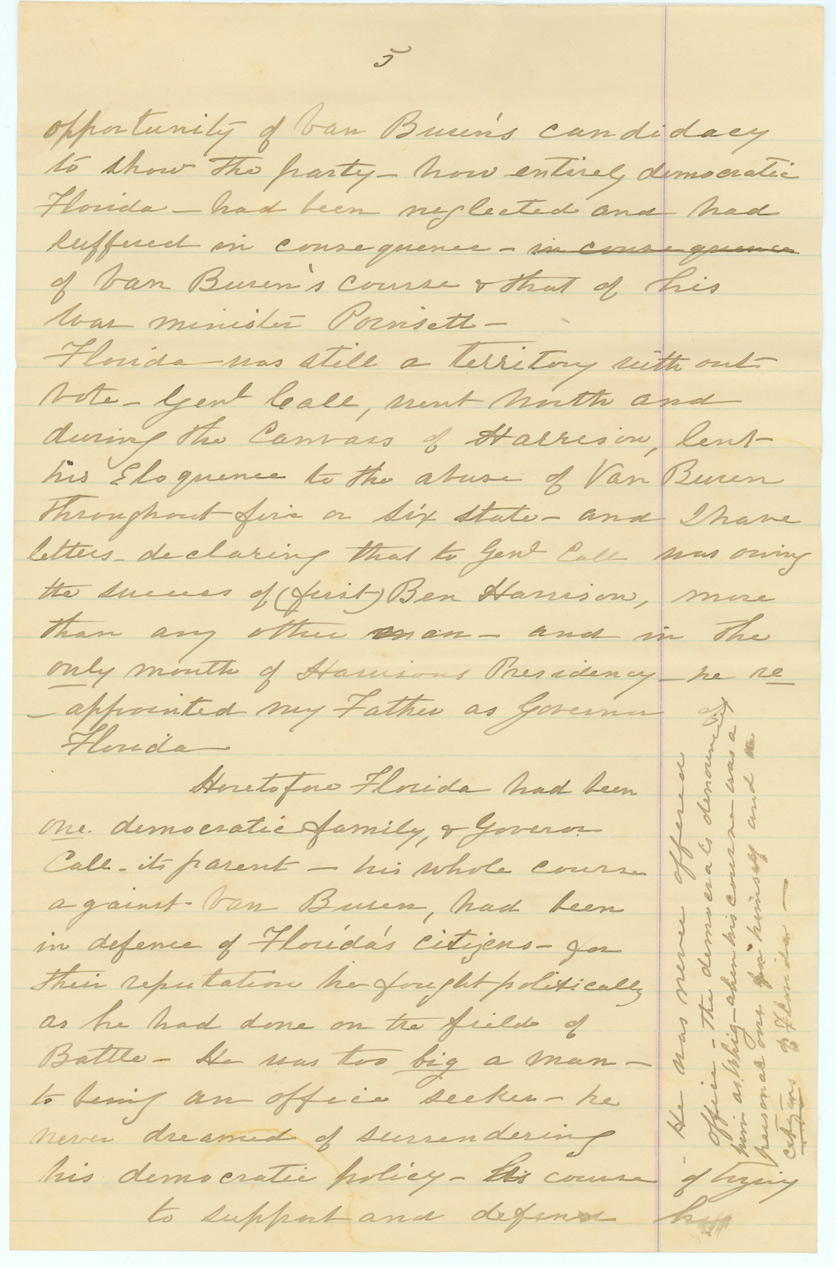 5
opportunity of Van Buren's candidacy
to show the party - how entirely democratic
Florida - had been neglected and had
suffered in consequence - in consequence
of Van Buren's course & that of his
War minister Poinsett -
Florida was still a territory without
vote - Genl Call, went North and
during the Canvass of Harrison, lent
his Eloquence to the abuse of Van Buren
throughout five or six state - and I have
letters - declaring that to Genl Call was owing
the success of (first) Ben Harrison, more
than any other man - and in the
only month of Harrisons Presidency - he re
- appointed my Father as Governor of
Florida
Heretofore Florida had been
one democratic family, & Governor
Call - its parent - his whole course
against Van Buren, had been
in defence of Florida's citizens - for
their reputation he fought politically
as he had done on the field of
Battle - He was too big a man -
to being an office seeker - he
never dreamed of surrendering
his democratic policy - his course of trying
to support and defence
- He was never offered
office - the democrats denouncing
him as Whig - when his course was a
personal one for himself and
citizens of Florida -